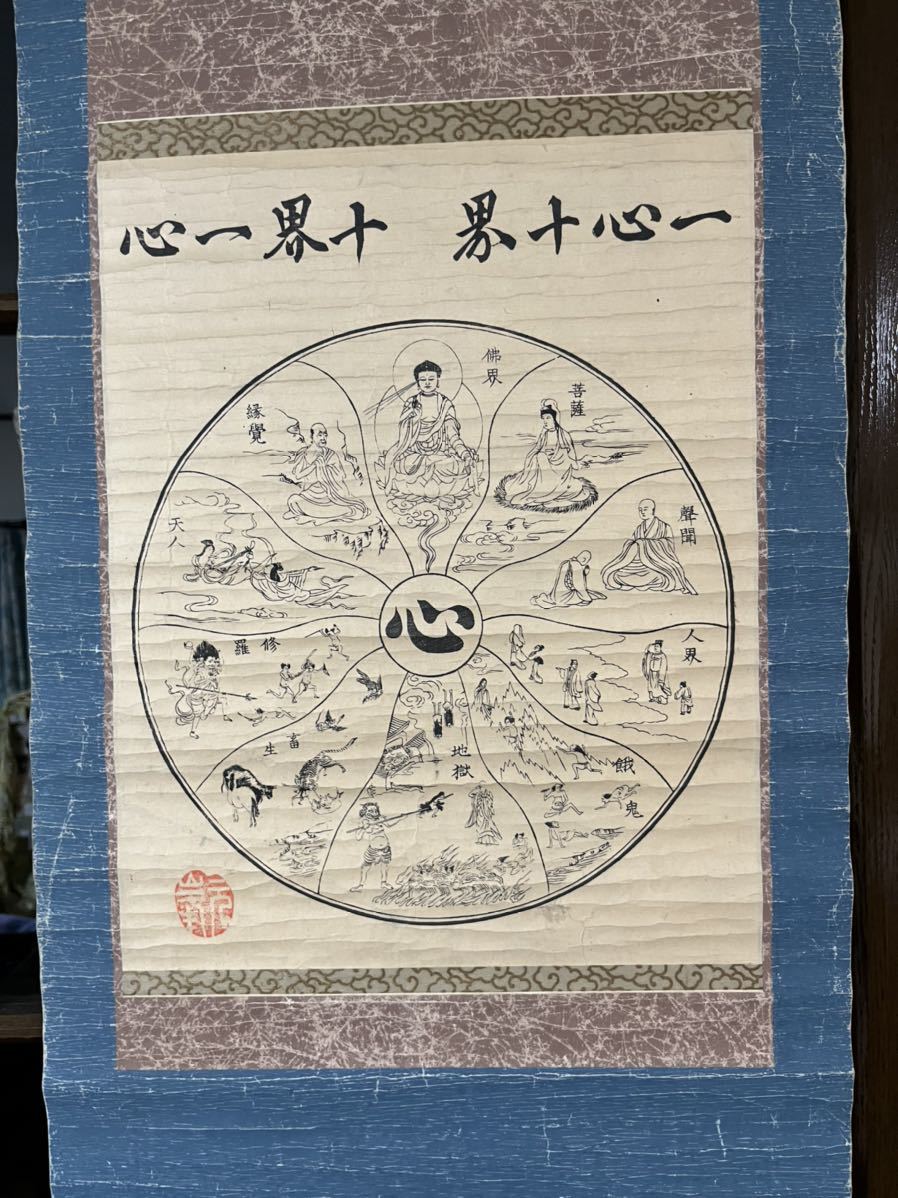 一心十界 十界一心
佛界
菩薩
聲聞
人界
餓鬼
地獄
畜生
修羅
天人
縁覺
心